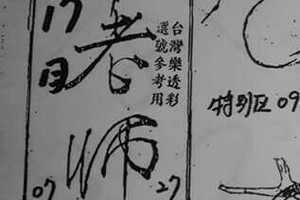 17日
老师
台灣樂透彩
選號參考用
特别区 09
07
27